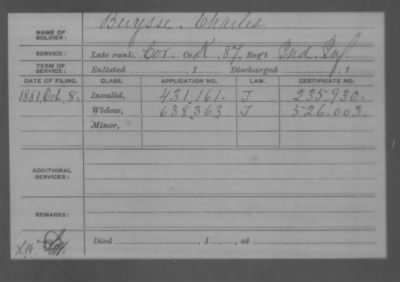 NAME OF SOLDIER: Burgess, Charles
SERVICE: Late rank, Cor. Co. K, 87, Reg't Ind. Inf.
TERM OF SERVICE: Enlisted , 1 Discharged , 1
DATE OF FILING. CLASS. APPLICATION NO. LAW. CERTIFICATE NO.
1881, Oct. 8. Invalid, 431,161. J 235,930.
Widow, 638,363 J 526,003.
Minor,
ADDITIONAL SERVICES:
REMARKS:
Died , 1 , at